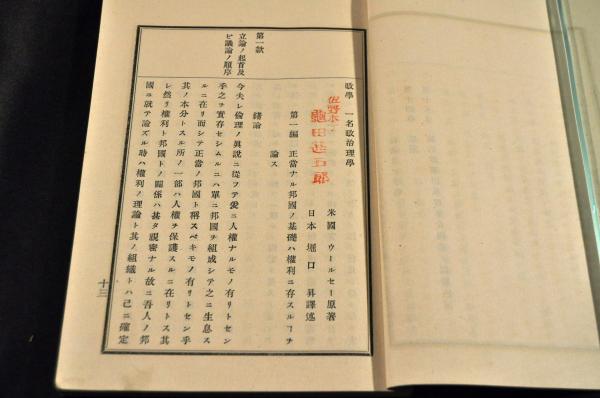 政學 一名政治理學
米國 ウールセー原著
日本 堀口 昇譯述
第一編 正當ナル邦國ノ基礎ハ權利ニ存スルヿヲ
論ス
緒論
第一款
立論ノ起首及
ビ議論ノ順序
今夫レ倫理ノ眞說ニ從フテ爰ニ人權ナルモノ有リトセン
乎之ヲ實存セシムルニハ單ニ邦國ヲ組成シテ之ニ生息ス
ルニ在リ而シテ正當ノ邦國ト稱スベキモノ有リトセン乎
其ノ本分トスル所ノ一部ハ人權ヲ保護スルニ在リトス其
レ然リ權利ト邦國トノ關係ハ甚タ親密ナル故ニ吾人ノ邦
國ニ就テ論ズル時ハ權利ノ理論ト其ノ組織トハ已ニ確定
十三